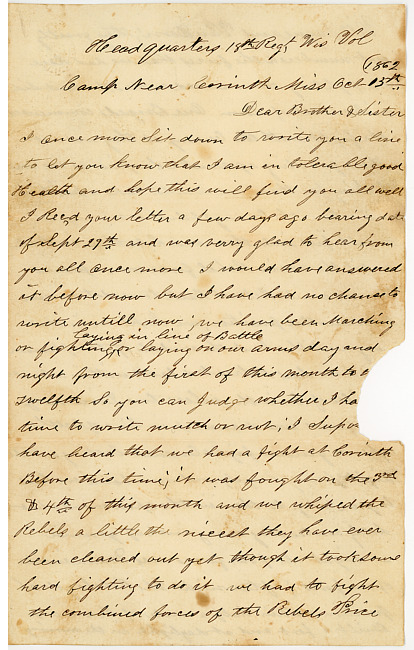 Headquarters 18th Regt Wis Vol
1862
Camp Near Corinth Miss Oct 13th
Dear Brother & Sister
I once more Sit down to write you a line
to let you know that I am in tolerable good
Health and hope this will find you all well
I Recd your letter a few days ago bearing date
of Sept 29th and was verry glad to hear from
you all once more I would have answered
it before now but I have had no chance to
write untill now, we have been Marching
laying in line of Battle
or fighting or laying on our arms day and
night from the first of this month to
twelfth So you can Judge whether I ha
time to write mutch or not, I Supo
have heard that we had a fight at Corinth
Before this time, it was fought on the 3rd
& 4th of this month and we whiped the
Rebels a little the nicest they have ever
been cleaned out yet though it took some
hard fighting to do it we had to fight
the combined forces of the Rebels Price